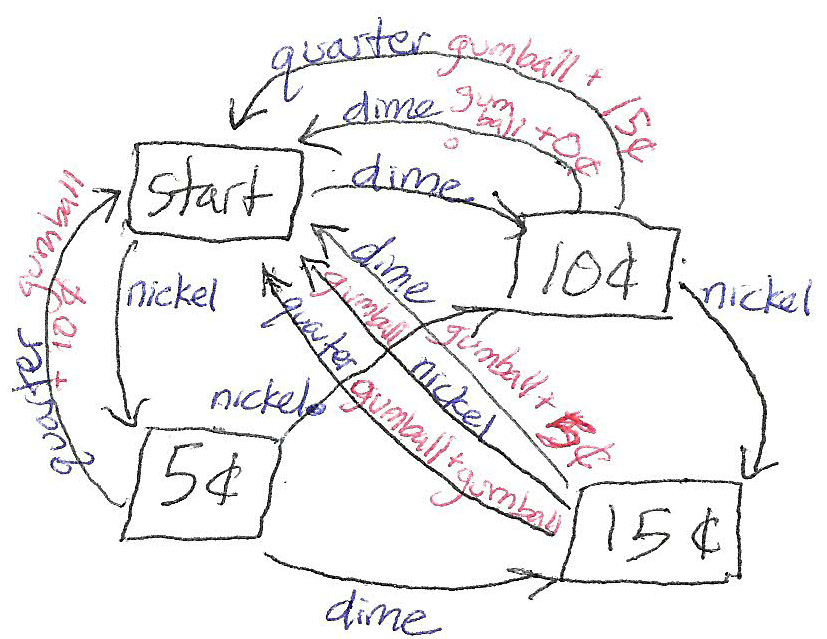 quarter gumball + 15¢
dime gum
ball + 0¢
start
dime
10¢
quarter gumball
+ 10¢
nickel
nickel
dime
gumball + 5¢
nickel
gumball
quarter
gumball+gumball
nickel
5¢
15¢
dime